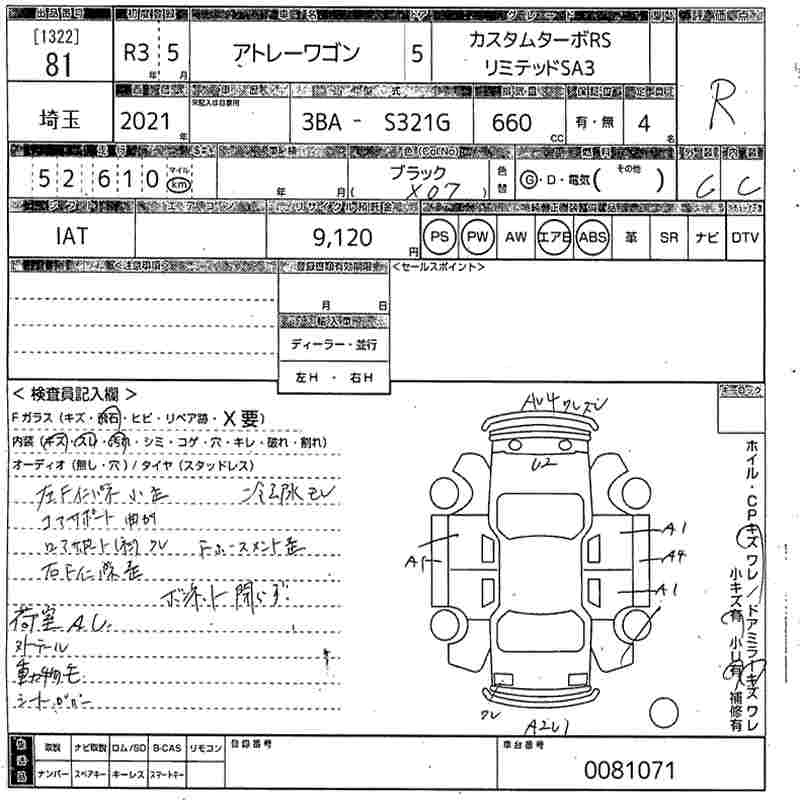 出品番号 初度登録 車名 ドア グレード 評価点
[1322]
81
R3年 5月
アトレーワゴン
5
カスタムターボRS
リミテッドSA3
R
埼玉
2021年
型式
3BA - S321G
排気量
660cc
有・無
4名
52,610
マイル
km
年 月
色(Col No)
ブラック
X07
色替
燃料
G・D・電気( その他 )
外装 内装
C C
シフト エアコン リサイクル預託金
IAT
9,120円
PS PW AW エアB ABS 革 SR ナビ DTV
<注意事項> 登録書類有効期限 <セールスポイント>
月 日
輸入車
ディーラー・並行
左H ・ 右H
キーロック
< 検査員記入欄 >
Fガラス (キズ・飛石・ヒビ・リペア跡・X要)
内装 (キズ・スレ・汚れ・シミ・コゲ・穴・キレ・破れ・割れ)
オーディオ (無し・穴) / タイヤ (スタッドレス)
コアサポート曲り
ボンネット開らず
荷室A,U.
動物毛
AU4 ワレズレ
U2
A1
A4
A1
ワレ
ホイル・CPキズワレ/ドアミラーキズワレ
小キズ有 小U有 補修有
取説 ナビ取説 ロム/SD B-CAS リモコン
ナンバー スペアキー キーレス スマートキー
登録番号
車台番号
0081071